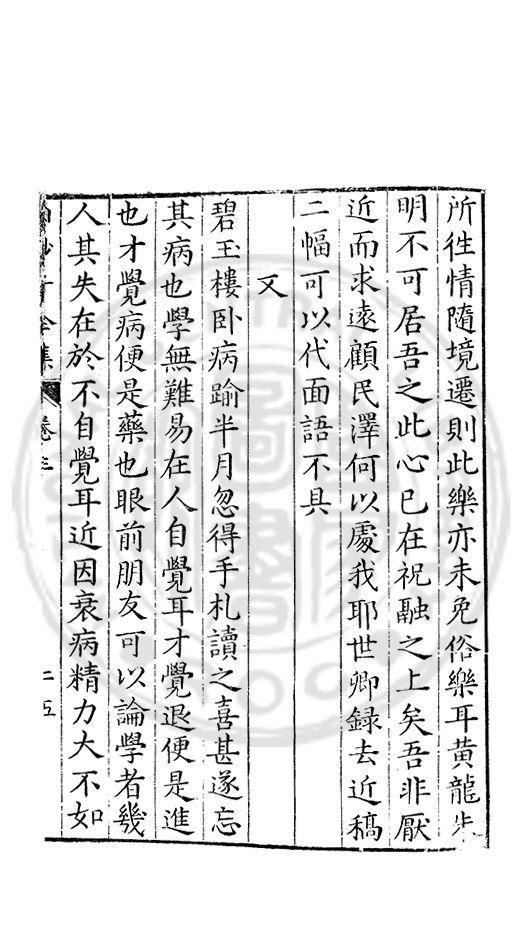 所徃情隨境遷則此樂亦未免俗樂耳黃龍朱
明不可居吾之此心已在祝融之上矣吾非厭
近而求逺顧民澤何以處我耶世卿録去近稿
二幅可以代面語不具
又
碧玉樓卧病踰半月忽得手札讀之喜甚遂忘
其病也學無難易在人自覺耳才覺退便是進
也才覺病便是藥也眼前朋友可以論學者幾
人其失在於不自覺耳近因衰病精力大不如
白沙子全集
卷三
二五